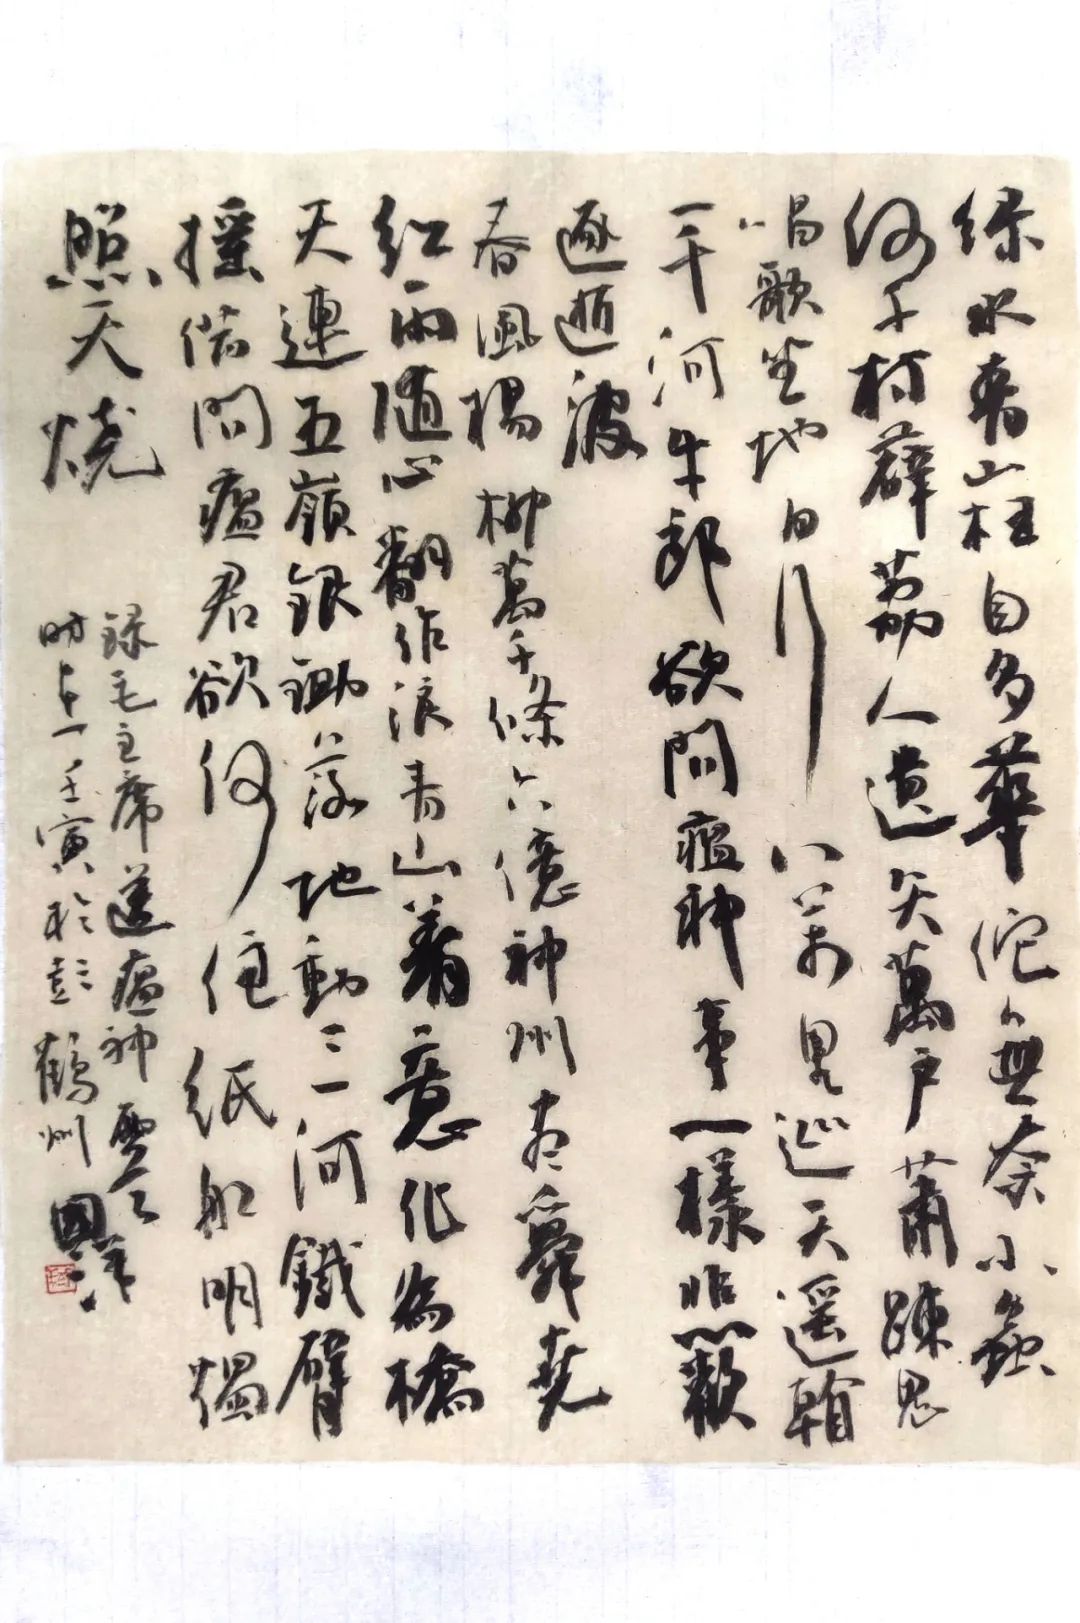 绿水青山枉自多華佗無奈小蟲
何千村薜荔人遺矢萬戶蕭疎鬼
唱歌坐地日行八萬里巡天遥
一千河牛郎欲問瘟神事一樣悲歡
逐逝波
春風楊柳萬千條六億神州盡舜堯
紅雨随心翻作浪青山着意化為橋
天連五嶺銀鋤落地動三河鐵臂
摇借問瘟君欲何往紙船明燭
照天燒
録毛主席送瘟神
壬寅於彭鶴州